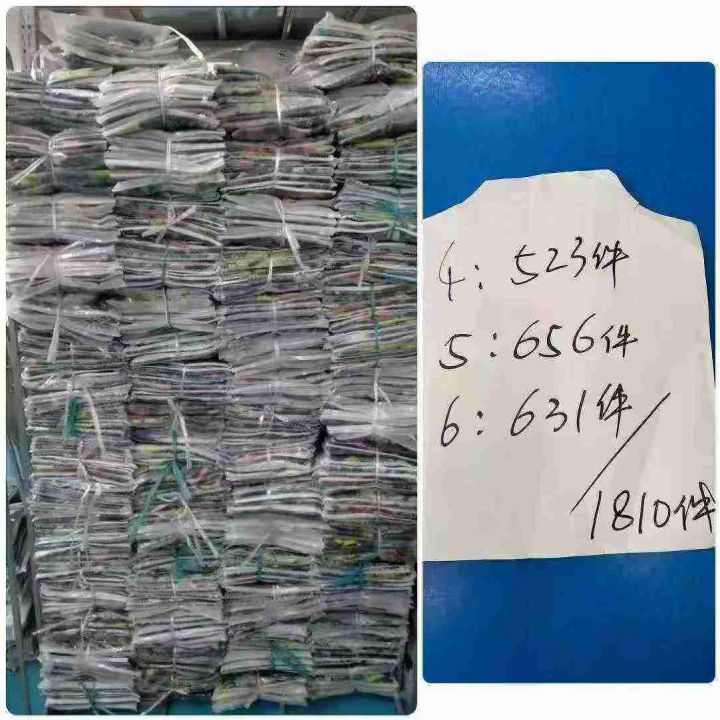 4: 523件
5: 656件
6: 631件
1810件